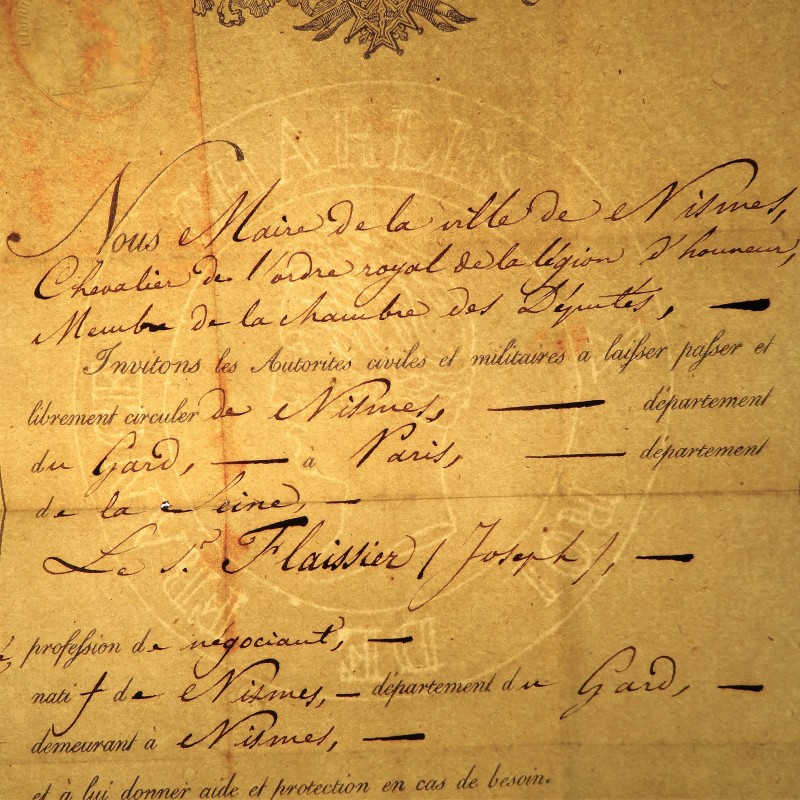 Nous Maire de la ville de Nismes,
Chevalier de l'ordre royal de la légion d'honneur,
Membre de la chambre des Députés, —
Invitons les Autorités civiles et militaires à laisser passer et
librement circuler de Nismes, — département
du Gard, — à Paris, — département
de la Seine, —
Le S.r Flaissier (Joseph), —
profession de négociant, —
natif de Nismes, — département du Gard, —
demeurant à Nismes, —
et à lui donner aide et protection en cas de besoin.
CHARLES X ROI DE FRANCE